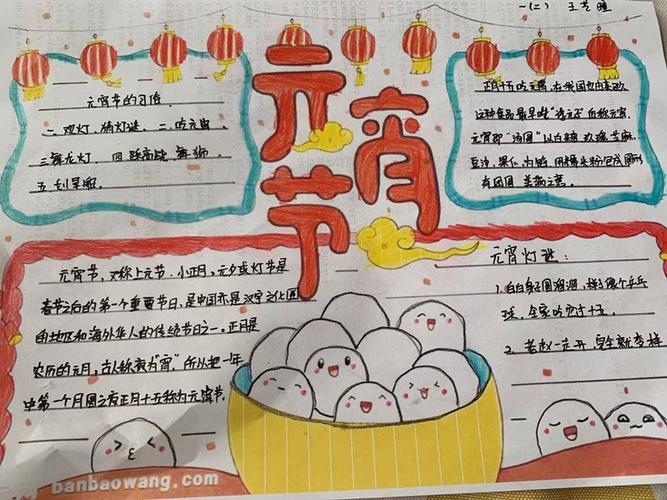 一(二) 王艺瞳
元宵节
元宵节的习俗
一、观灯、猜灯谜、二、吃元宵、
三、舞龙灯、四、踩高跷、舞狮、
五、划旱船。
正月十五吃元宵,在我国也由来已
这种食品最早叫"浮元子"后称元宵,
元宵即"汤圆"以白糖、玫瑰、芝麻、
豆沙、果仁、为馅,用糯米粉包成圆形
有团圆美满之意。
元宵节,又称上元节、小正月、元夕或灯节是
春节之后的第一个重要节日,是中国亦是汉字文化圈
的地区和海外华人的传统节日之一,正月是
农历的元月,古人称夜为"宵",所以把一年
中第一个月圆之夜正月十五称为元宵节。
元宵灯谜:
1、白白身子圆溜溜,
球,全家吃
2、
banbaowang.com